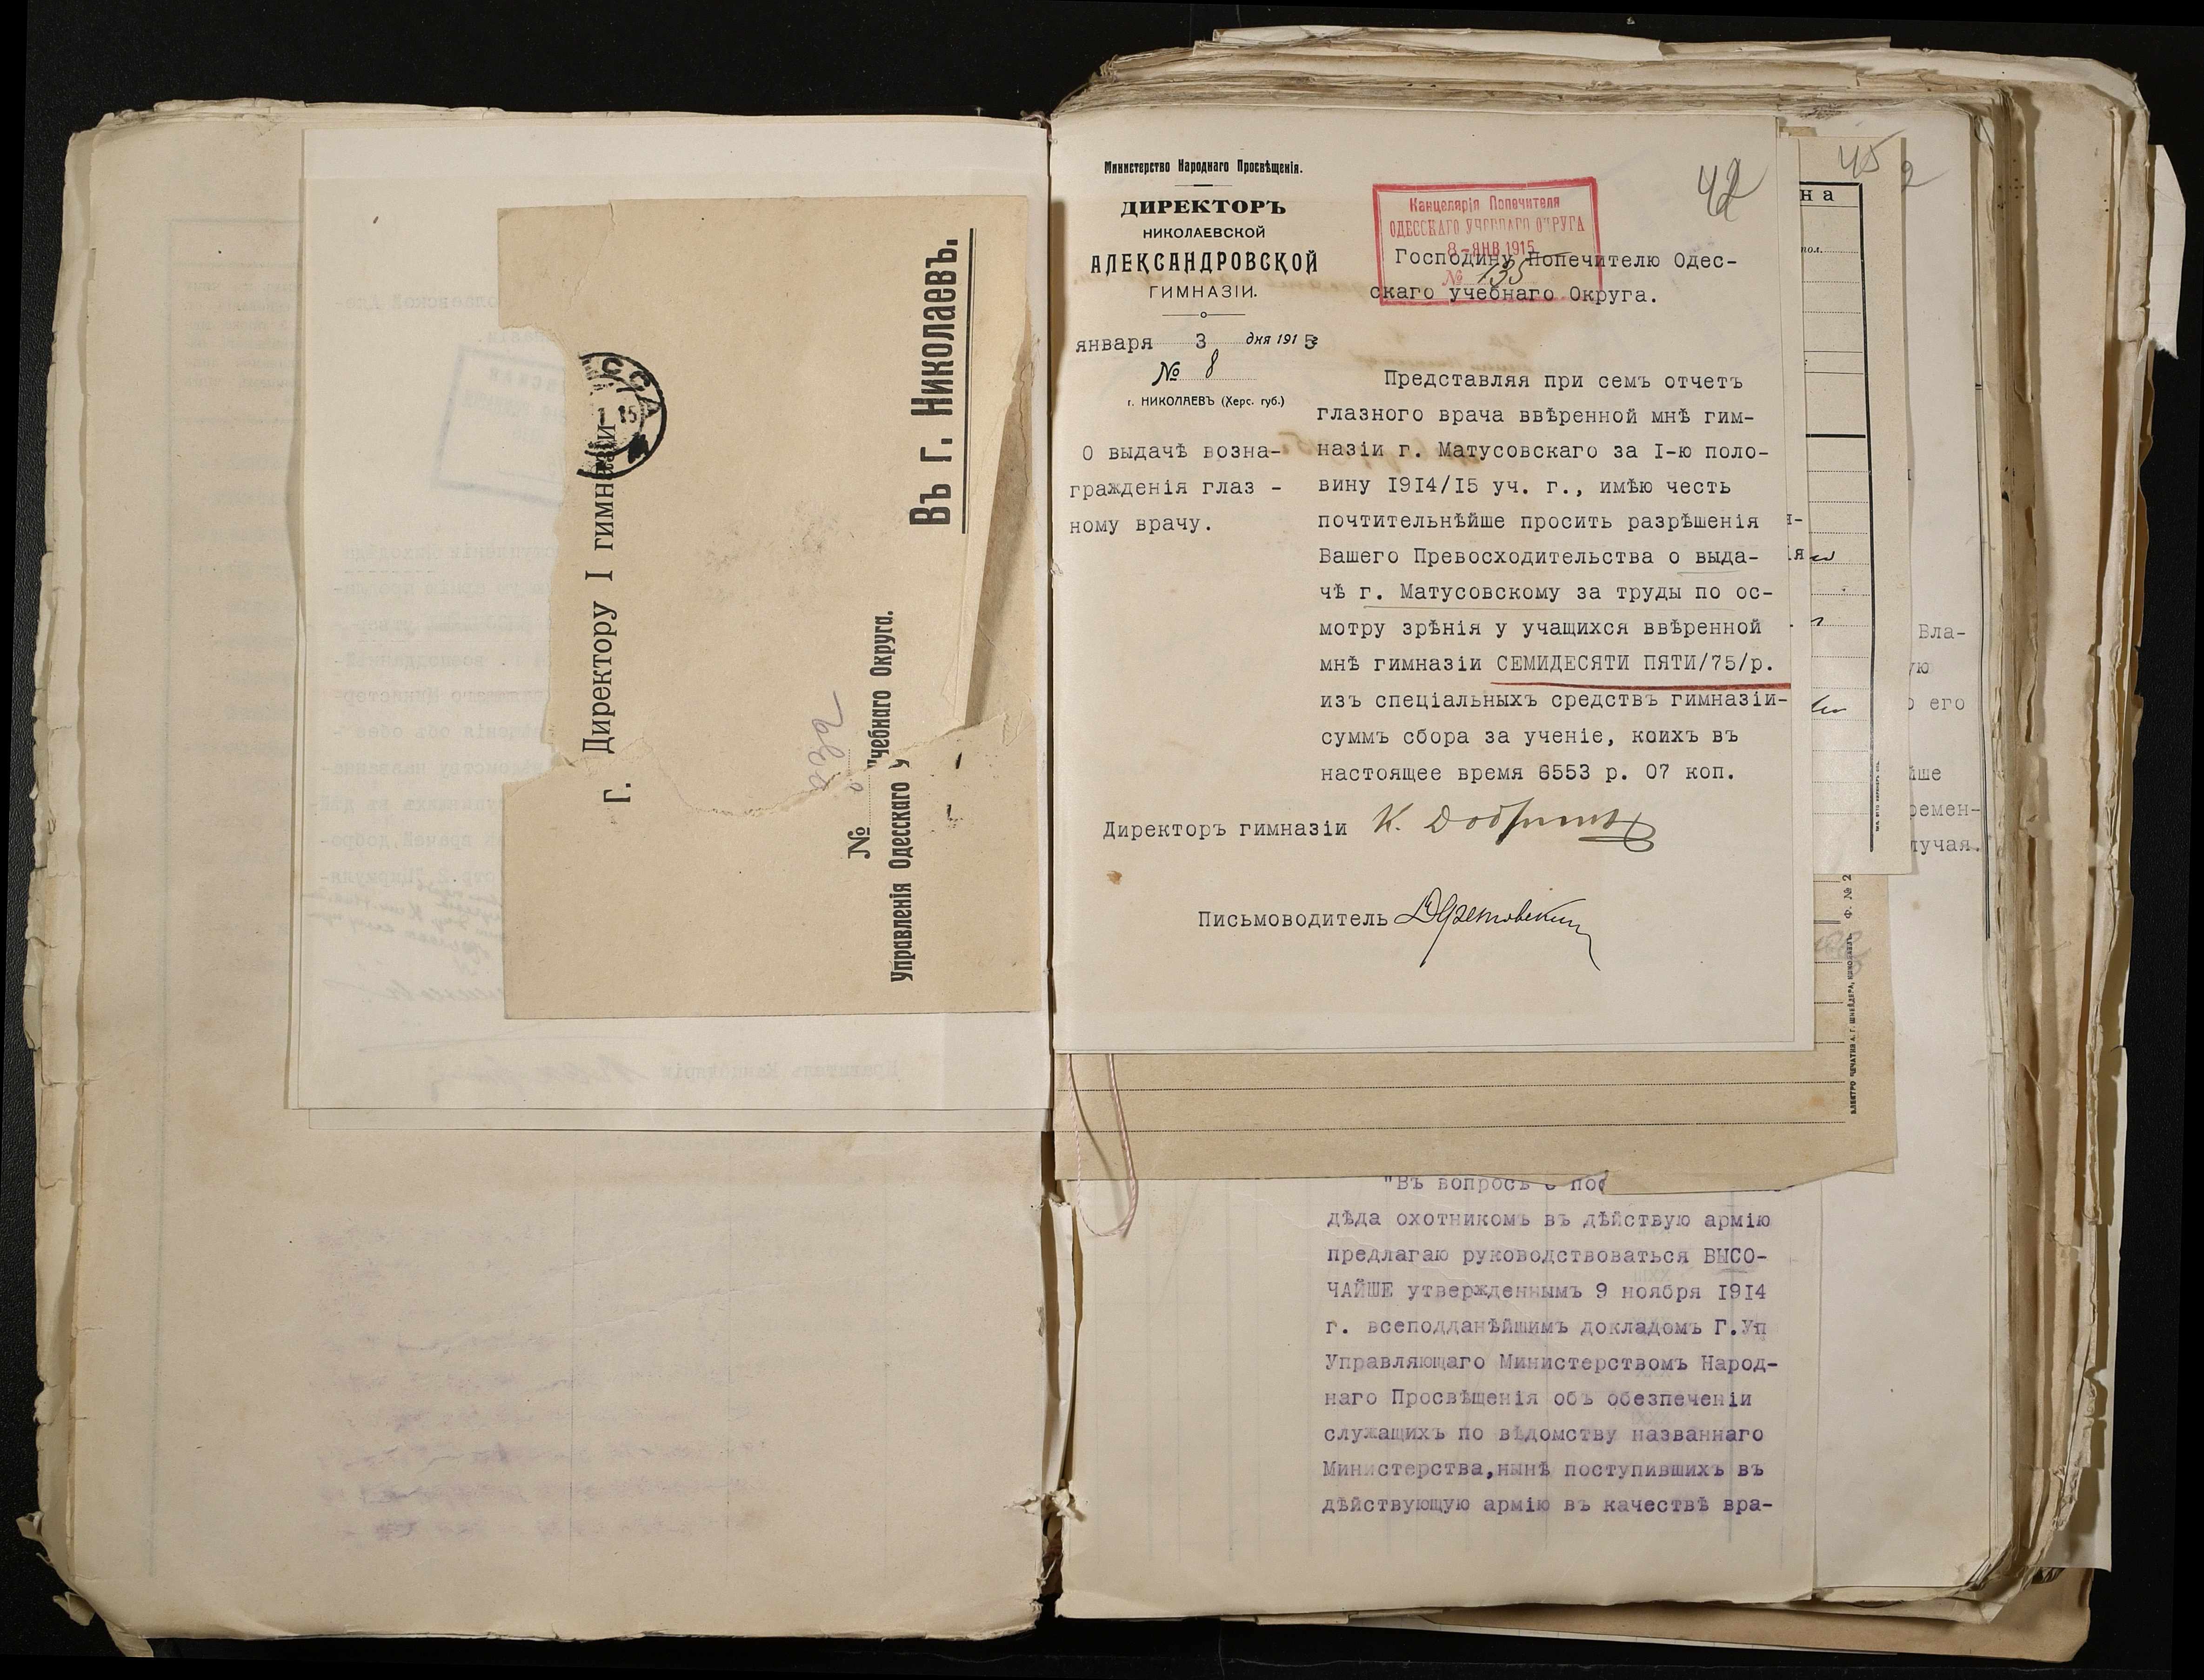 Г. Директору I гимназіи
ЕССА
1 15
Въ г. Николаевъ.
№
Управленія Одесскаго Учебнаго Округа.
Министерство Народнаго Просвѣщенія.
ДИРЕКТОРЪ
НИКОЛАЕВСКОЙ
АЛЕКСАНДРОВСКОЙ
ГИМНАЗІИ.
января 3 дня 1915
№ 8
г. НИКОЛАЕВЪ (Херс. губ.)
О выдачѣ возна-
гражденія глаз -
ному врачу.
42
Канцелярія Попечителя
ОДЕССКАГО УЧЕБНАГО ОКРУГА
8-ЯНВ.1915
№ 135
Господину Попечителю Одес-
скаго учебнаго Округа.
Представляя при семъ отчетъ
глазного врача ввѣренной мнѣ гим-
назіи г. Матусовскаго за I-ю поло-
вину 1914/15 уч. г., имѣю честь
почтительнѣйше просить разрѣшенія
Вашего Превосходительства о выда-
чѣ г. Матусовскому за труды по ос-
мотру зрѣнія у учащихся ввѣренной
мнѣ гимназіи СЕМИДЕСЯТИ ПЯТИ/75/р.
изъ спеціальныхъ средствъ гимназіи-
суммъ сбора за ученіе, коихъ въ
настоящее время 6553 р. 07 коп.
Директоръ гимназіи
Письмоводитель
45
2
на
пол.
Вла-
ую
о его
йше
ремен-
лучая.
Ф. № 2
ЭЛЕКТРО ПЕЧАТНЯ А. Г. ШНЕЙДЕРА, НИКОЛАЕВЪ.
"Въ вопросѣ о пос
дѣда охотникомъ въ дѣйствую армію
предлагаю руководствоваться ВЫСО-
ЧАЙШЕ утвержденнымъ 9 ноября 1914
г. всеподданѣйшимъ докладомъ Г.Уп
Управляющаго Министерствомъ Народ-
наго Просвѣщенія объ обезпеченіи
служащихъ по вѣдомству названнаго
Министерства,нынѣ поступившихъ въ
дѣйствующую армію въ качествѣ вра-